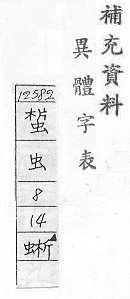 補充資料
異體字表
12582
虫
8
14
蜤